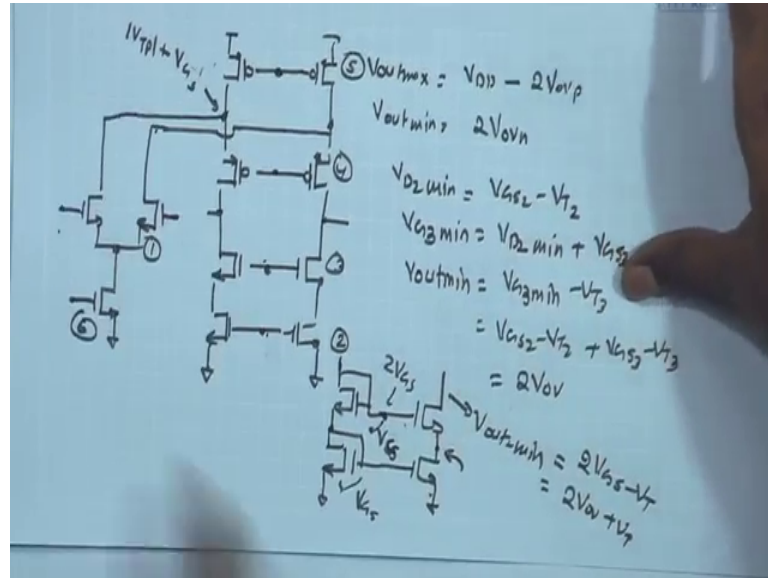 |VTP| + VGS
⑤ Voutmax = VDD - 2Vovp
Voutmin, 2Vovn
④
VD2 min = VGS2 - VT2
① ③
VG3 min = VD2 min + VGS3
Voutmin = VG3min - VT3
⑥
= VGS2 - VT2 + VGS3 - VT3
②
= 2VOV
2VGS
VGS
VGS
Voutmin = 2VGS - VT
= 2VOV + VT